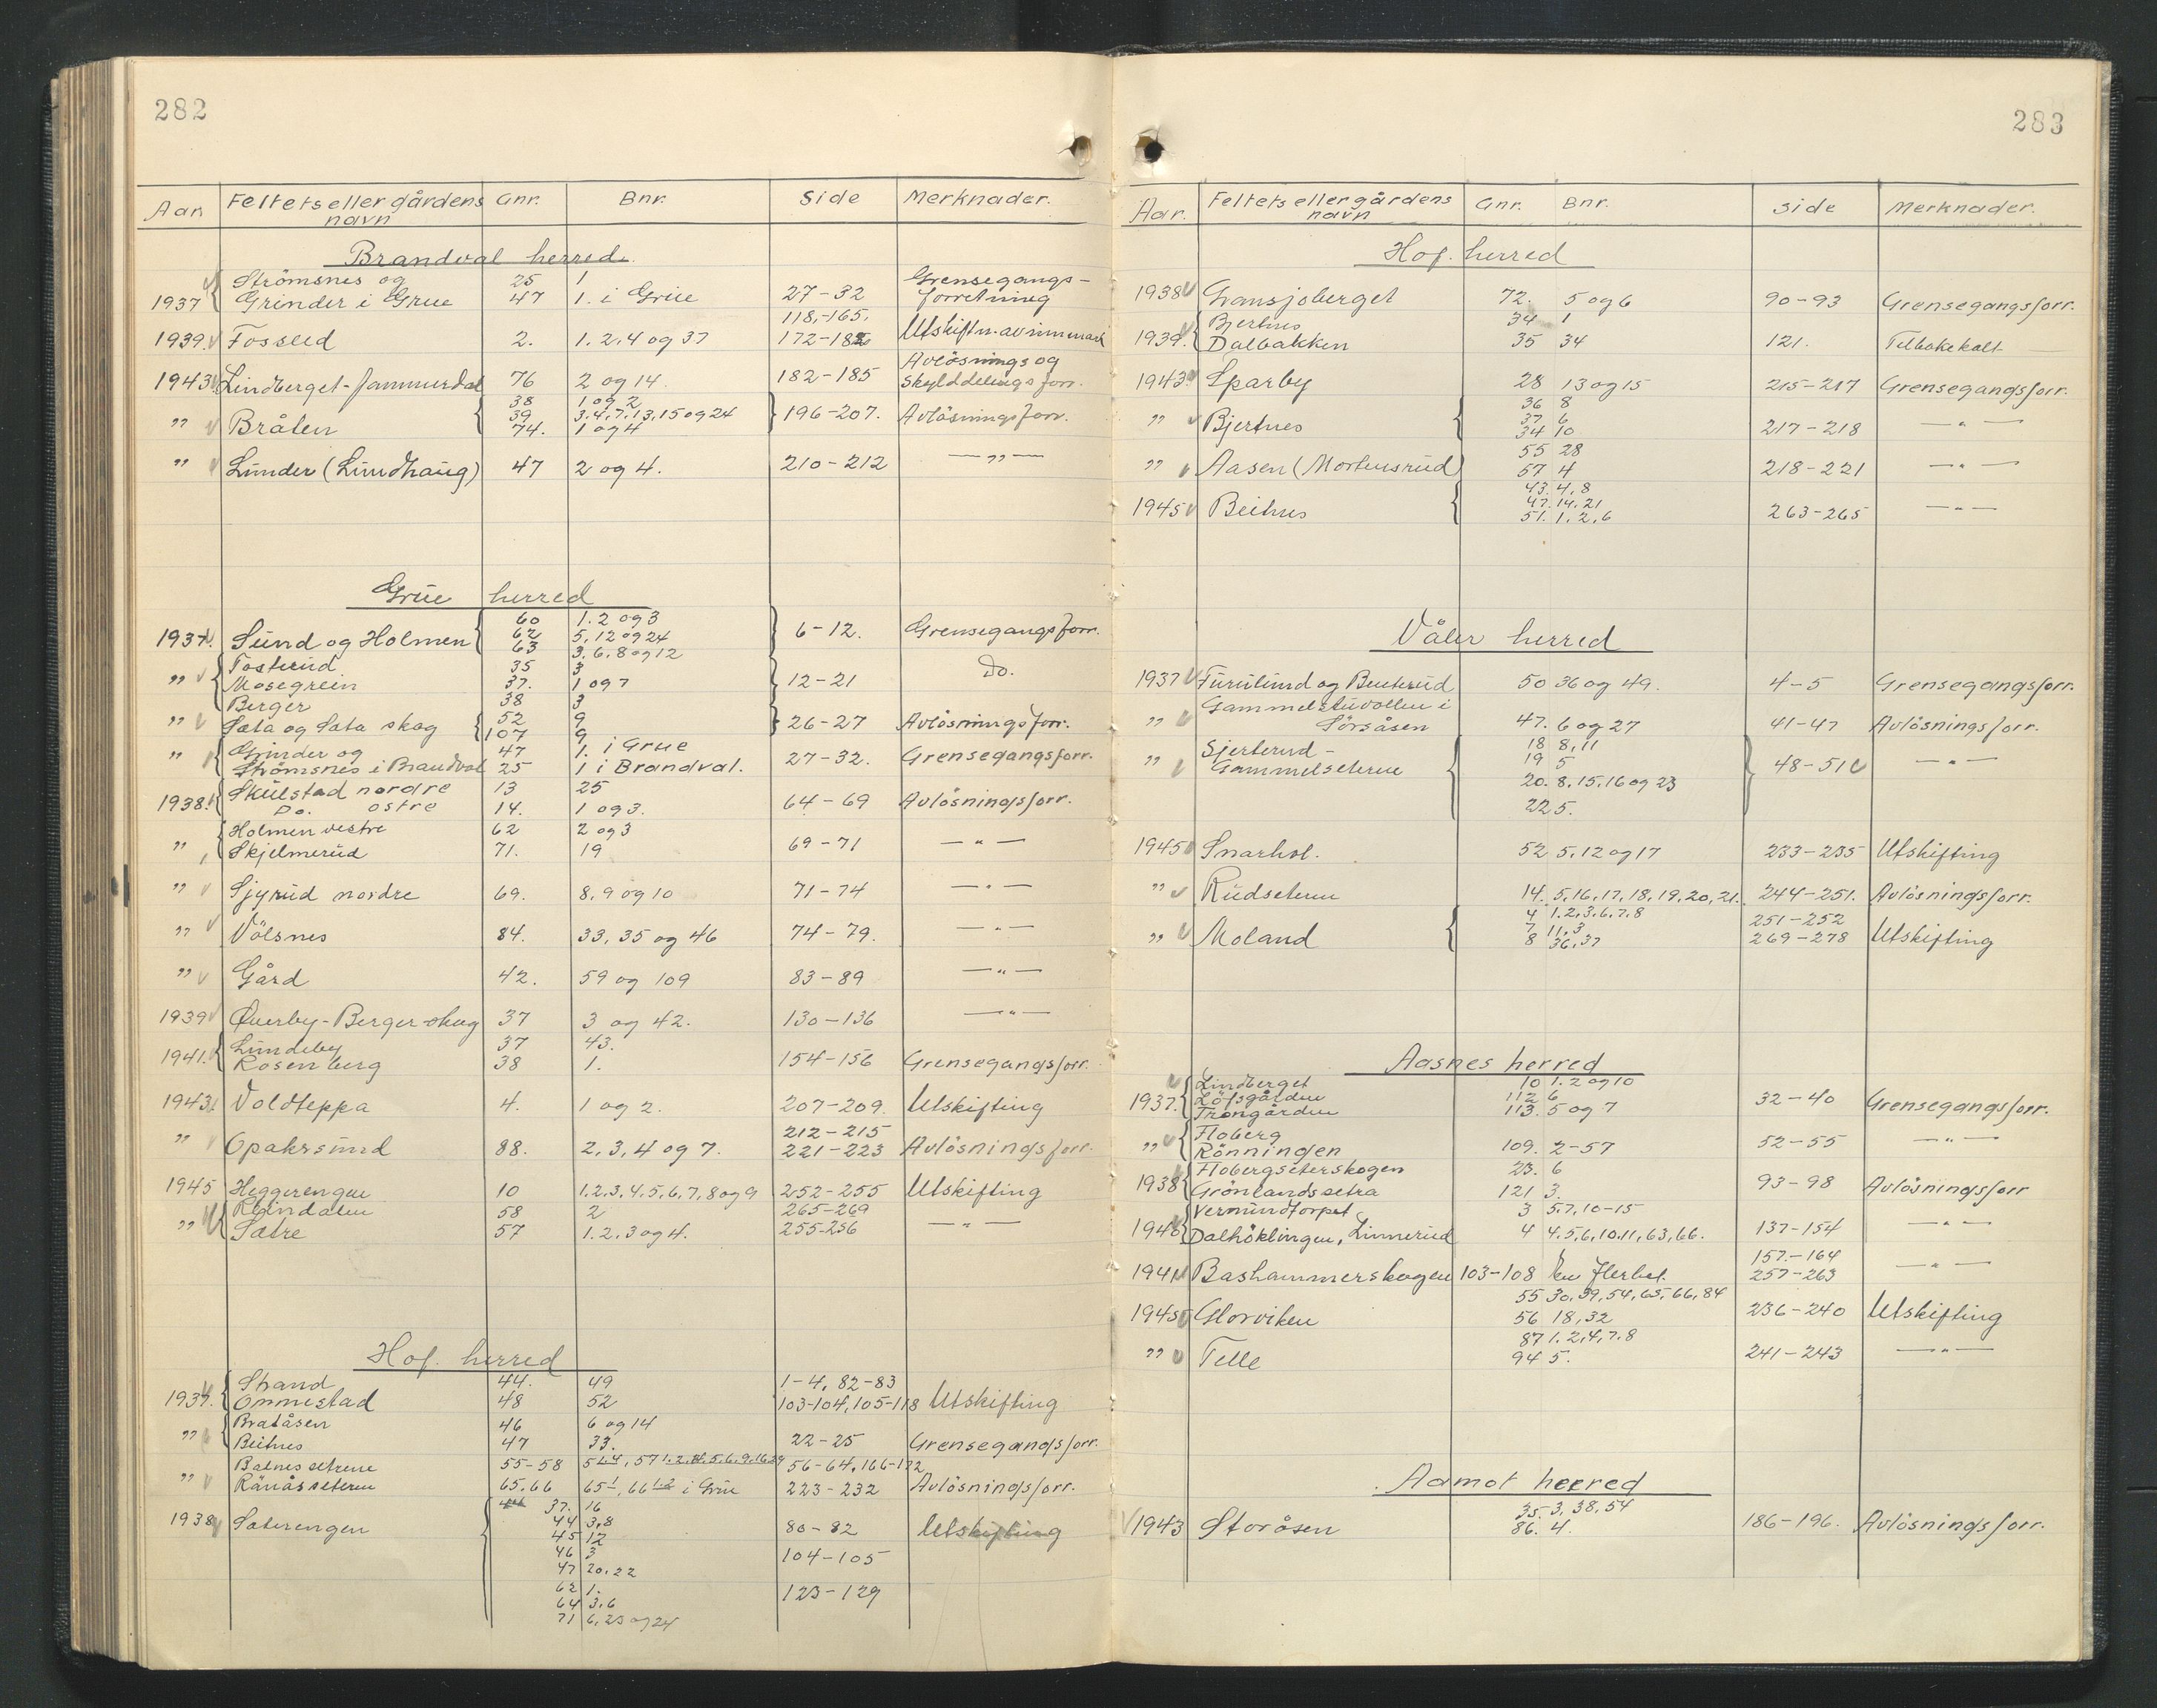 282
Aar. Feltets eller gårdens navn Gnr. Bnr. Side Merknader.
Brandval herred.
Strömsnes og 25 1 Grensegangs-
1937 Grinder i Grue 47 1. i Grue 27-32 forretning
118,-165.
1939. Fosseid 2. 1. 2, 4 og 37 172-182 Utskiftn. av innmark
Avlösnings og
1943 Lindberget-Jammerdal 76 2 og 14. 182-185 Skylddelings forr.
38 1 og 2
39 3, 4, 7, 13, 15 og 24
" Bråten 74. 1 og 4 196-207. Avlösningsforr.
" Lunder (Lundhaug) 47 2 og 4. 210-212 — " —
Grue herred
60 1. 2 og 3
1937 Sund og Holmen 62 5, 12 og 24 6-12. Grensegangsforr.
63 3. 6. 8 og 12
Tosterud 35 3 Do.
" Mosegrein 37. 1 og 7 12-21
Berger 38 3
" Sata og Sata skog 52 9 26-27 Avlösningsforr.
107 9
" Grinder og 47 1. i Grue 27-32. Grensegangsforr.
Strömsnes i Brandval 25 1 i Brandval.
1938. Skulstad nordre 13 25 64-69 Avlösningsforr.
Do. östre 14. 1 og 3.
Holmen vestre 62 2 og 3
" Skjelmerud 71. 19 69-71 — " —
" Sjyrud nordre 69. 8, 9 og 10 71-74 — " —
" Völsnes 84. 33, 35 og 46 74-79. — " —
" Gård 42. 59 og 109 83-89 — " —
1939 Øverby-Berger-skog 37 3 og 42. 130-136 — " —
Lundeby 37 43.
1941. Rosenberg 38 1. 154-156 Grensegangsforr.
1943 Voldteppa 4. 1 og 2. 207-209. Utskifting
212-215
" Opaksrund 88. 2, 3, 4 og 7. 221-223 Avlösningsforr.
1945 Heggerengen 10 1. 2. 3. 4. 5. 6. 7. 8 og 9 252-255 Utskifting
Reindalen 58 2 265-269
" Satre 57 1. 2. 3 og 4. 255-256 — " —
Hof. herred
Strand 44. 49 1-4, 82-83
1937. Ommestad 48 52 103-104, 105-118 Utskifting
Bratåsen 46 6 og 14
" Beitnes 47 33. 22-25 Grensegangsforr.
Balnes setrene 55-58 56-64, 166-172
" Rånås seteren 65. 66 65 1, 66 1.2 i Grue 223-232 Avlösningsforr.
37. 16
1938 Saterengen 44 3,8 80-82 Utskifting
45 12
46 3 104-105
47 20. 22
62 1. 123-129
64 3,6
71 6, 23 og 24
283
Aar. Feltets eller gårdens navn Gnr. Bnr. Side Merknader.
Hof. herred
1938 Gransjøberget 72. 5 og 6 90-93 Grensegangsforr.
Bjertnes 34 1
1939. Dalbakken 35 34 121. Tilbakekalt
1943 Sparby 28 13 og 15 215-217 Grensegangsforr.
36 8
" Bjertnes 37 6 217-218 — " —
34 10
55 28
" Aasen (Mortensrud) 57 4 218-221 — " —
43. 4, 8
1945 Beitnes 47. 14. 21 263-265 — " —
51. 1. 2. 6
Våler herred
1937 Furulund og Buterud 50 36 og 49. 4-5 Grensegangsforr.
Gammelstuvollen i
" Sörsåsen 47. 6 og 27 41-47 Avlösningsforr.
Sjerterud- 18 8, 11
" Gammelseteren 19 5 48-51 — " —
20. 8, 15, 16 og 23
22 5.
1945 Snarhol. 52 5, 12 og 17 233-235 Utskifting
" Rudseteren 14. 5, 16, 17, 18, 19, 20, 21. 244-251. Avlösningsforr.
4 1. 2, 3, 6, 7, 8 251-252
" Moland 7 11, 3 269-278 Utskifting
8 36, 37
Aasnes herred
Lindberget 10 1. 2 og 10
1937. Löfsgården 112 6 32-40 Grensegangsforr.
Trongården 113. 5 og 7
Floberg
" Rönningen 109. 2-57 52-55 — " —
Flobergseterskogen 23. 6
1938 Grönlandssetra 121 3. 93-98 Avlösningsforr
Vermundtorpet 3 5. 7, 10-15
1940 Dalhöklingen, Linnerud 4 4. 5, 6, 10. 11, 63, 66. 137-154 — " —
157.-164
1941 Bashammerskogen 103-108 en flerhet. 257-263 — " —
55 30, 39, 54, 65, 66, 84
1945 Glorviken 56 18, 32 236-240 Utskifting
87 1. 2, 4, 7. 8
" Telle 94 5. 241-243 — " —
Aamot herred
35. 3, 38, 54
1943 Storåsen 86. 4. 186-196. Avlösningsforr.